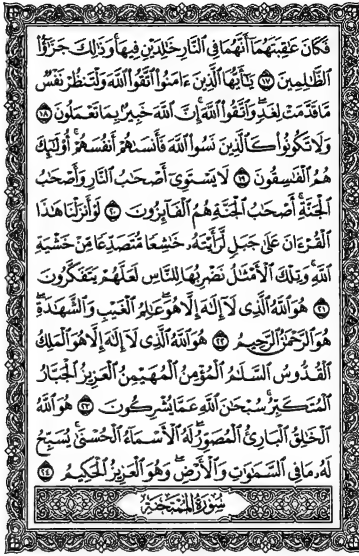 فَكَانَ عَٰقِبَتَهُمَآ أَنَّهُمَا فِي ٱلنَّارِ خَٰلِدَيۡنِ فِيهَاۚ وَذَٰلِكَ جَزَٰٓؤُاْ
ٱلظَّٰلِمِينَ ١٧ يَٰٓأَيُّهَا ٱلَّذِينَ ءَامَنُواْ ٱتَّقُواْ ٱللَّهَ وَلۡتَنظُرۡ نَفۡسٞ
مَّا قَدَّمَتۡ لِغَدٖۖ وَٱتَّقُواْ ٱللَّهَۚ إِنَّ ٱللَّهَ خَبِيرُۢ بِمَا تَعۡمَلُونَ ١٨
وَلَا تَكُونُواْ كَٱلَّذِينَ نَسُواْ ٱللَّهَ فَأَنسَىٰهُمۡ أَنفُسَهُمۡۚ أُوْلَٰٓئِكَ
هُمُ ٱلۡفَٰسِقُونَ ١٩ لَا يَسۡتَوِيٓ أَصۡحَٰبُ ٱلنَّارِ وَأَصۡحَٰبُ
ٱلۡجَنَّةِۚ أَصۡحَٰبُ ٱلۡجَنَّةِ هُمُ ٱلۡفَآئِزُونَ ٢٠ لَوۡ أَنزَلۡنَا هَٰذَا
ٱلۡقُرۡءَانَ عَلَىٰ جَبَلٖ لَّرَأَيۡتَهُۥ خَٰشِعٗا مُّتَصَدِّعٗا مِّنۡ خَشۡيَةِ
ٱللَّهِۚ وَتِلۡكَ ٱلۡأَمۡثَٰلُ نَضۡرِبُهَا لِلنَّاسِ لَعَلَّهُمۡ يَتَفَكَّرُونَ
٢١ هُوَ ٱللَّهُ ٱلَّذِي لَآ إِلَٰهَ إِلَّا هُوَۖ عَٰلِمُ ٱلۡغَيۡبِ وَٱلشَّهَٰدَةِۖ
هُوَ ٱلرَّحۡمَٰنُ ٱلرَّحِيمُ ٢٢ هُوَ ٱللَّهُ ٱلَّذِي لَآ إِلَٰهَ إِلَّا هُوَ ٱلۡمَلِكُ
ٱلۡقُدُّوسُ ٱلسَّلَٰمُ ٱلۡمُؤۡمِنُ ٱلۡمُهَيۡمِنُ ٱلۡعَزِيزُ ٱلۡجَبَّارُ
ٱلۡمُتَكَبِّرُۚ سُبۡحَٰنَ ٱللَّهِ عَمَّا يُشۡرِكُونَ ٢٣ هُوَ ٱللَّهُ
ٱلۡخَٰلِقُ ٱلۡبَارِئُ ٱلۡمُصَوِّرُۖ لَهُ ٱلۡأَسۡمَآءُ ٱلۡحُسۡنَىٰۚ يُسَبِّحُ
لَهُۥ مَا فِي ٱلسَّمَٰوَٰتِ وَٱلۡأَرۡضِۖ وَهُوَ ٱلۡعَزِيزُ ٱلۡحَكِيمُ ٢٤
سُورَةُ المُمْتَحنَةِ